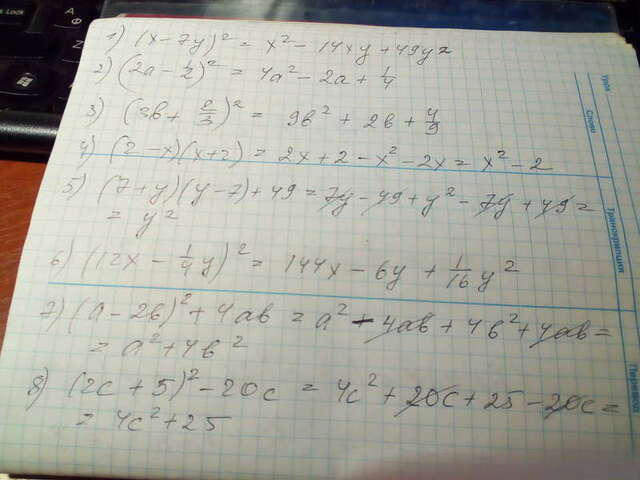 1) (x-7y)² = x² - 14xy + 49y²
2) (2a - 1/2)² = 4a² - 2a + 1/4
3) (3b + 2/3)² = 9b² + 2b + 4/9
4) (2-x)(x+2) = 2x + 2 - x² - 2x = x² - 2
5) (7+y)(y-7)+49 = 7y - 49 + y² - 7y + 49 =
= y²
6) (12x - 1/4y)² = 144x - 6y + 1/16y²
7) (a-2b)² + 4ab = a² - 4ab + 4b² + 4ab =
= a² + 4b²
8) (2c+5)² - 20c = 4c² + 20c + 25 - 20c =
= 4c² + 25
Слово
Транскрипция